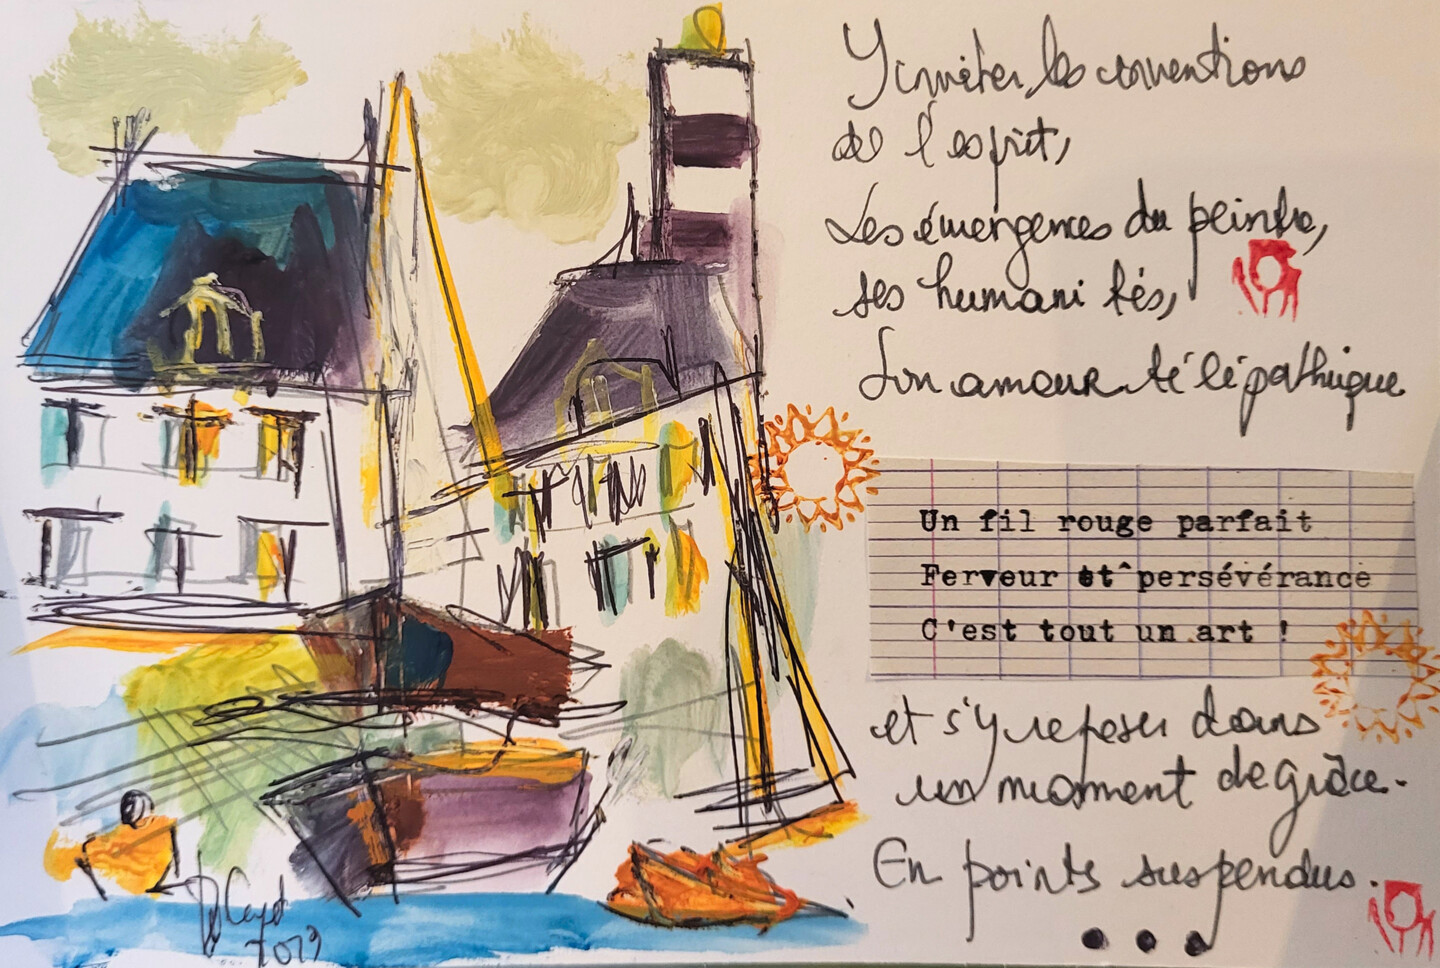 Y les conventions
de l'esprit,
Les émergences du peintre,
ses humanités,
Son amour télépathique
Un fil rouge parfait
Ferveur et persévérance
C'est tout un art !
et s'y reposer dans
un moment de grâce.
En points suspendus.
...